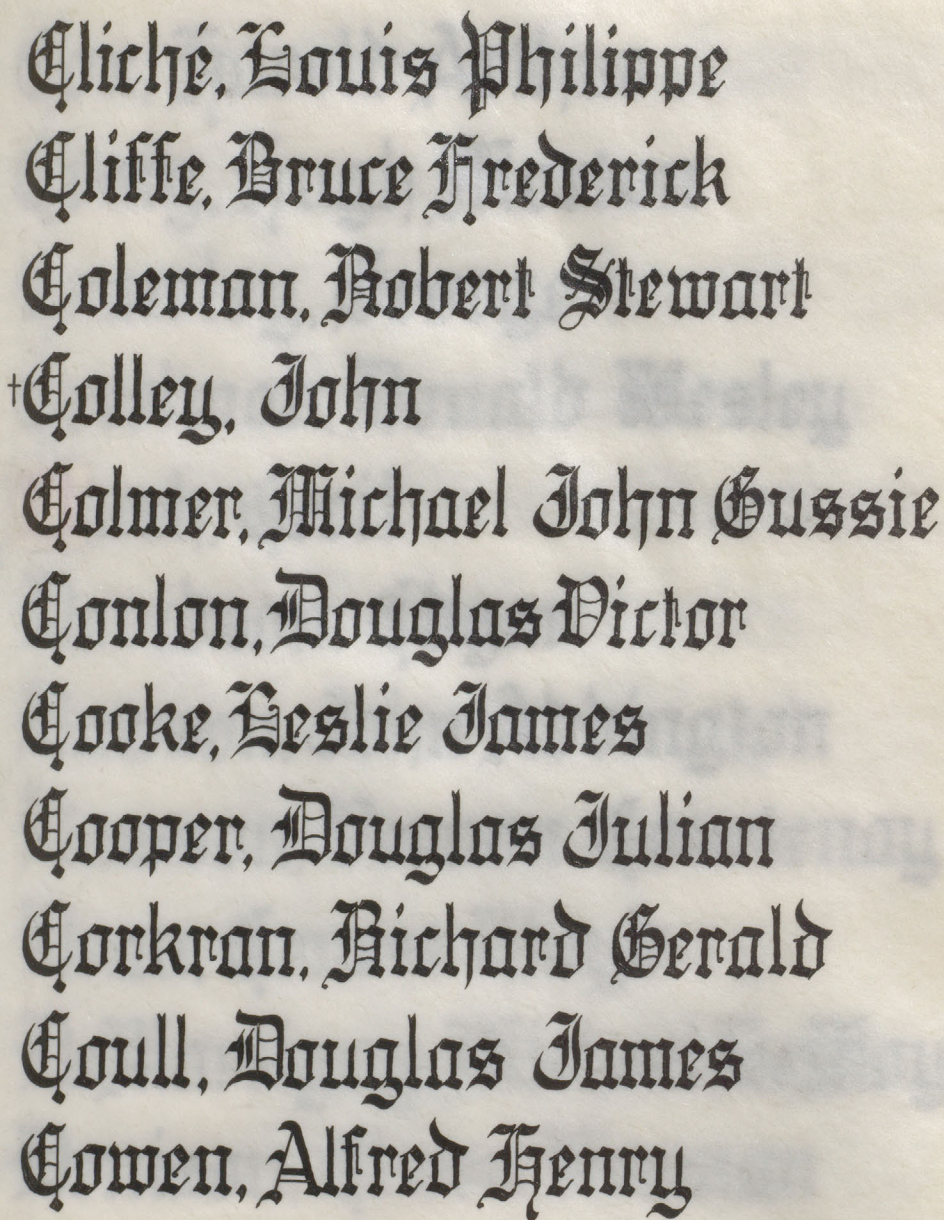 Cliché, Louis Philippe
Cliffe, Bruce Frederick
Coleman, Robert Stewart
†Colley, John
Colmer, Michael John Gussie
Conlon, Douglas Victor
Cooke, Leslie James
Cooper, Douglas Julian
Corkran, Richard Gerald
Coull, Douglas James
Cowen, Alfred Henry